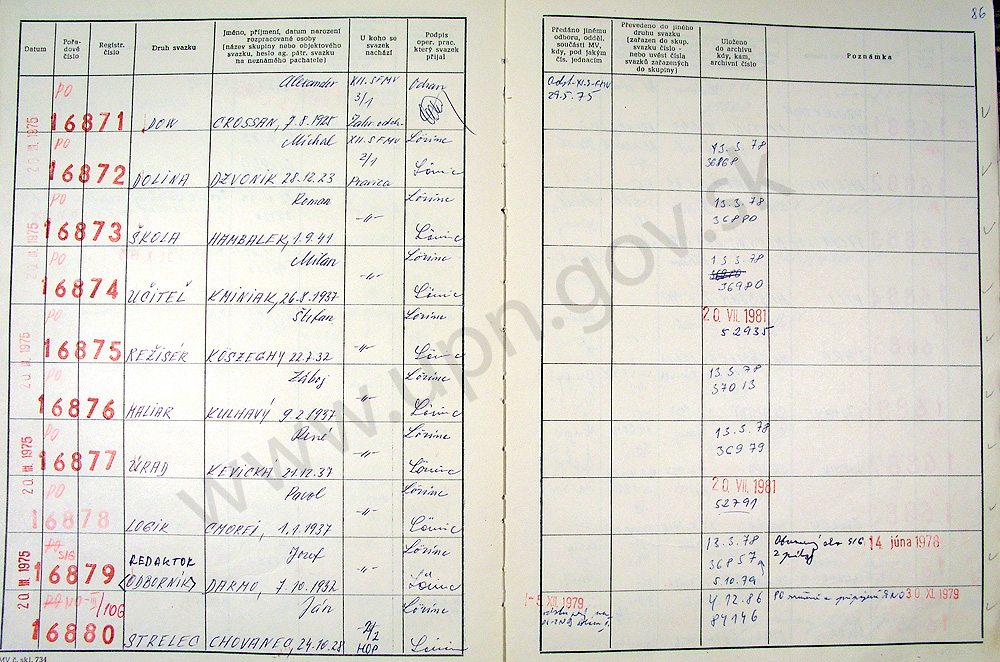 86
Datum
Pořadové číslo
Registr. číslo
Druh svazku
Jméno, příjmení, datum narození rozpracované osoby (název skupiny nebo objektového svazku, heslo ag. pátr. svazku na neznámého pachatele)
U koho se svazek nachází
Podpis oper. prac. který svazek přijal
Předáno jinému odboru, odděl. součásti MV, kdy, pod jakým čís. jednacím
Převedeno do jiného druhu svazku (zařazen do skup. svazku číslo - nebo uvést čísla svazků zařazených do skupiny)
Uloženo do archivu kdy, kam, archivní číslo
Poznámka
PO Alexander XII. SFMV
3/1
16871 DON CROSSAN, 7.8.1925
29.5.75
20 III. 1975
PO Michal XII. SFMV Lörinc
2/1
16872 DOLINA DZVONÍK 28.12.23 Pravica Lörinc
13.3.78
36868
PO Roman -"- Lörinc
16873 ŠKOLA HAMBALEK, 1.9.41 Lörinc
13.3.78
36880
20 III. 1975
PO Milan -"- Lörinc
16874 UČITEĽ KMINIAK, 26.8.1937 Lörinc
13.3.78
36980
PO Štefan Lörinc
16875 REŽISÉR KÖSZEGHY, 22.7.32 -"- Lörinc
20. VII. 1981
52935
20 III. 1975
PO Záboj Lörinc
16876 MALIAR KULHAVÝ 9.2.1937 -"- Lörinc
13.3.78
37013
PO René Lörinc
16877 ÚRAD KEVICKÁ 21.12.37 -"- Lörinc
13.3.78
36979
20 III. 1975
PO Pavol Lörinc
16878 LOGIK 1.1.1937 -"- Lörinc
20. VII. 1981
52791
PO SIG Jozef Lörinc
16879 REDAKTOR (ODBORNÍK) DARMO, 7.10.1932 -"- Lörinc
13.3.78
36857
5.10.79
14. júna 1978
20 III. 1975
PO /106 Ján Lörinc
16880 STRELEC CHOVANEC, 24.10.28 -"- 2/2 Lörinc
1-5 XII. 1979
4.12.86
84146
30 XI. 1979
MV č. skl. 734
www.upn.gov.sk